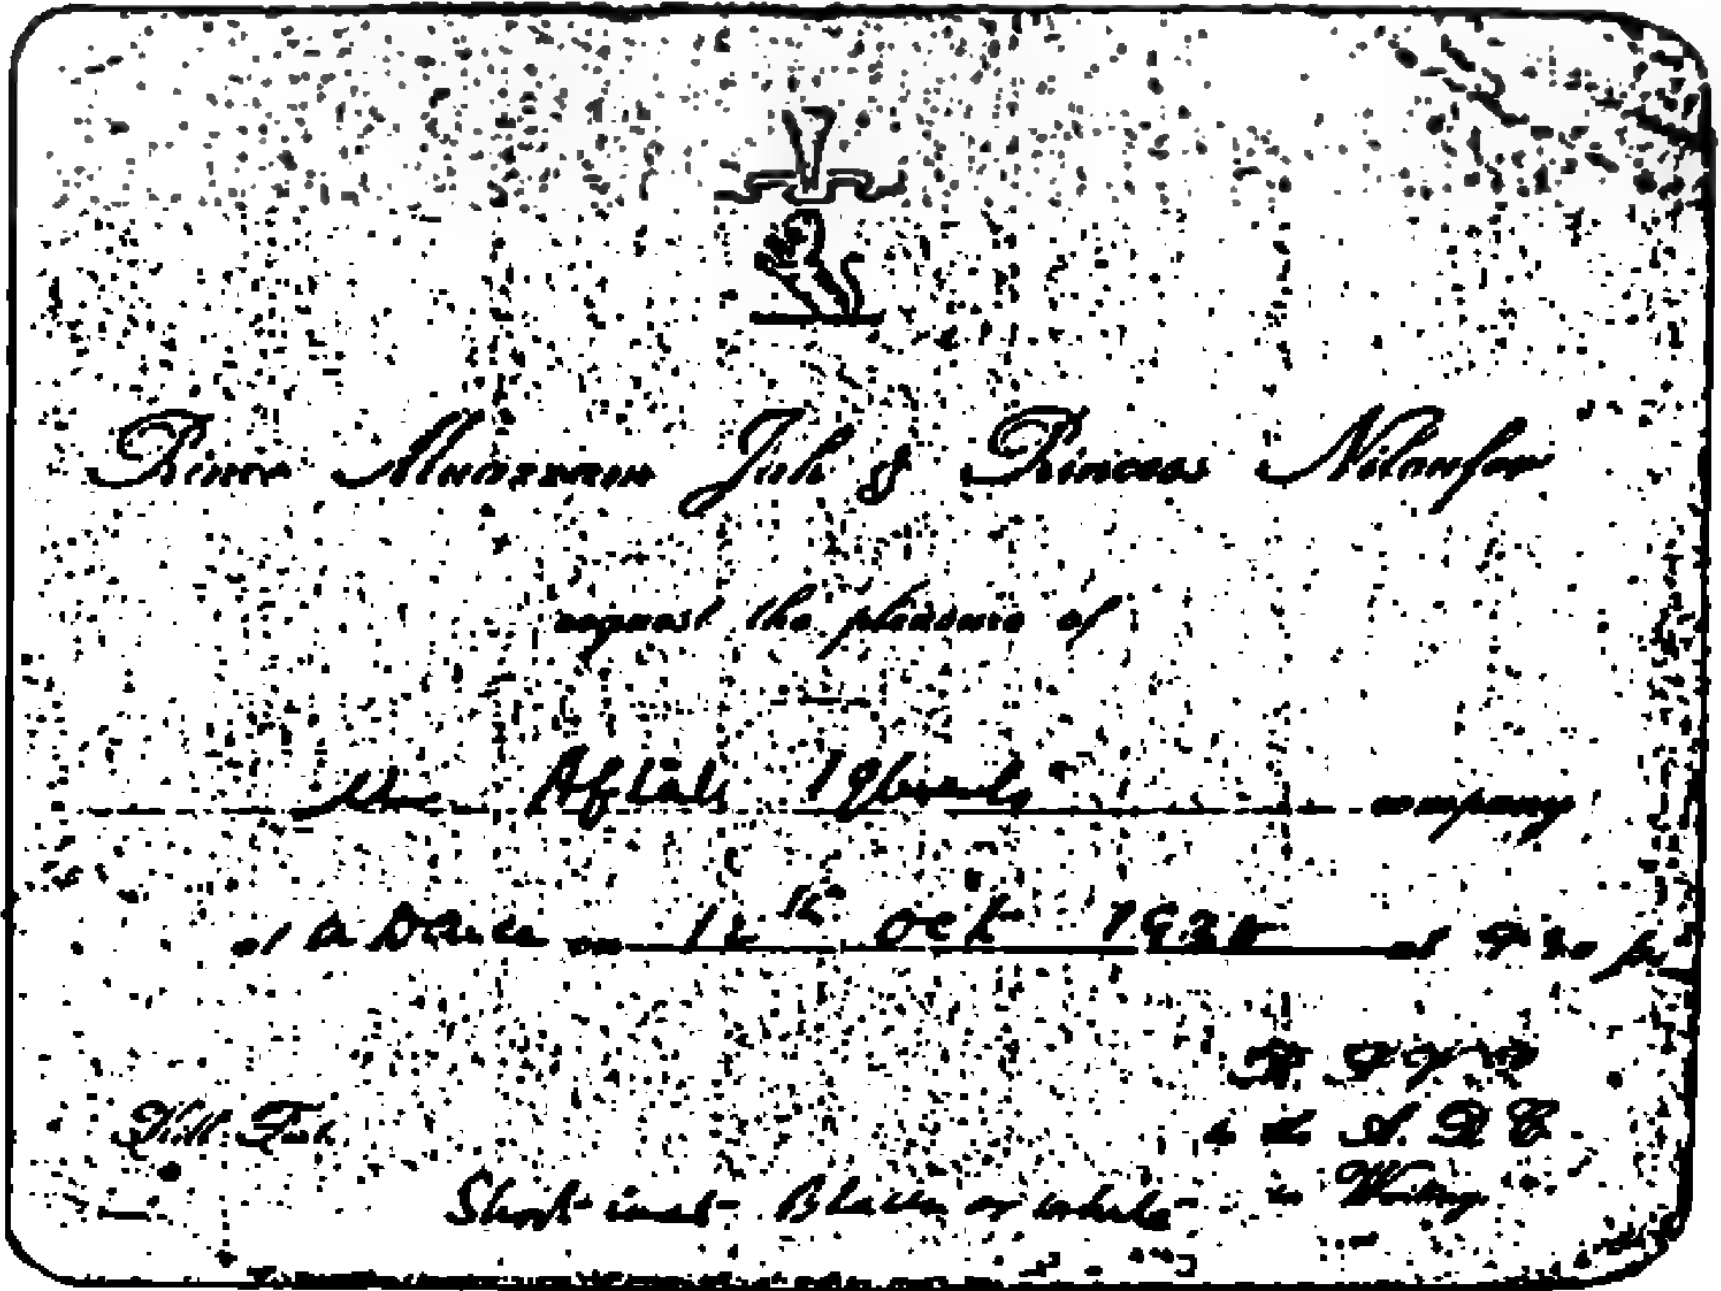 Prince Muazzam Jah & Princess Niloufer
request the pleasure of
Aftab Iqbal company
at a Dance on 12th Oct 193 at 9 30
R. S. V. P
to the A. D. C
Hill Fort.
in Waiting
Short coat Black or white